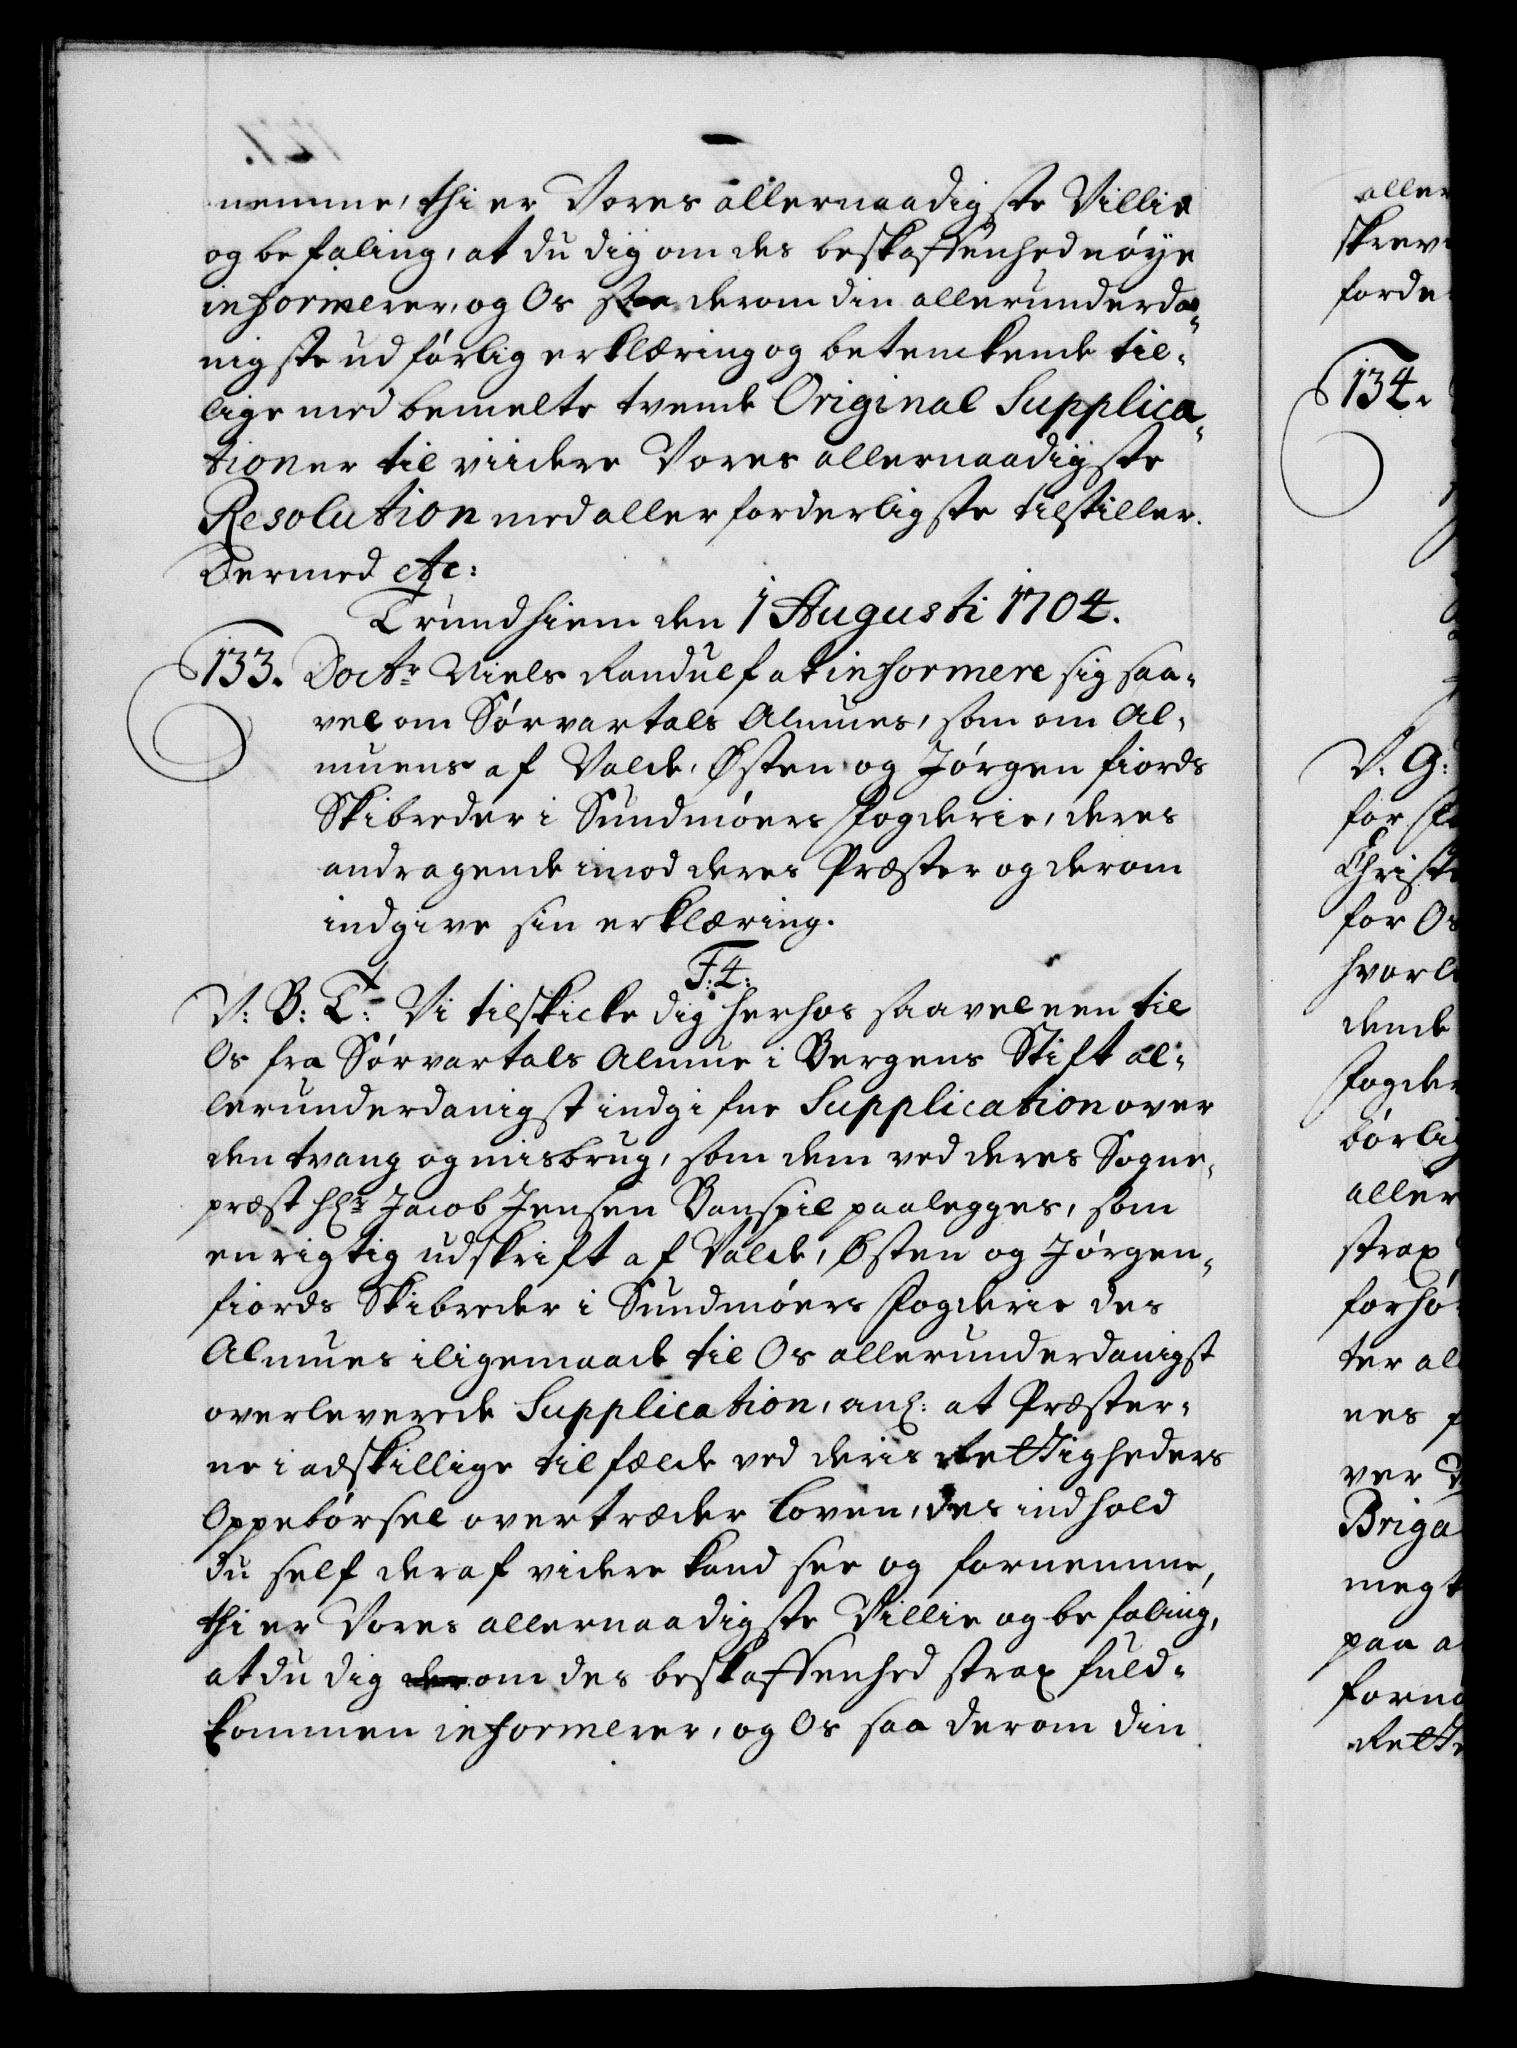 nemme, thi er Vores allernaadigste Villie
og befaling, at du dig om des beskaffenhed nøye
informerer, og Os saa derom din allerunderda-
nigste udførlig erklæring og betenckende til-
lige med bemelte tvende Original Supplica-
tioner til viidere Vores allernaadigste
Resolution med allerforderligste tilstiller.
Dermed etc:
Trundhiem den 1 Augusti 1704.
133. Doctr Niels Randulf at informere sig saa-
vel om Sørvartals Almues, som om Al-
muens af Valde, Østen og Jørgenfiords
Skibreder i Sundmøers Fogderie, deres
andragende imod deres Præster og derom
indgive sin erklæring.
F: 4:
V: B: T: Vi tilskicke dig herhos saavel een til
Os fra Sørvartals Almue i Bergens Stift al-
lerunderdanigst indgifne Supplication over
den tvang og misbrug, som dem ved deres Sogne-
præst Hr Jacob Jensen Banspil paalegges, som
en rigtig udskrift af Valde, Østen og Jørgen-
fiords Skibreder i Sundmøers Fogderie des
Almues iligemaade til Os allerunderdanigst
overleverede Supplication, anl: at Præster-
ne i adskillige tilfælde ved deris Rettigheders
Oppebørsel overtræder loven, des indhold
du self deraf videre kand see og fornemme,
thi er Vores allernaadigste Villie og befaling,
at du dig om des beskaffenhed strax fuld-
kommen informerer, og Os saa derom din
aller
skrev
forde
134.
V: G:
for
Christ
for Os
hvorl
dende
Fogder
børlig
aller
strax
forhør
ter al
nes
ver
Briga
megt
paa a
forno
Rette